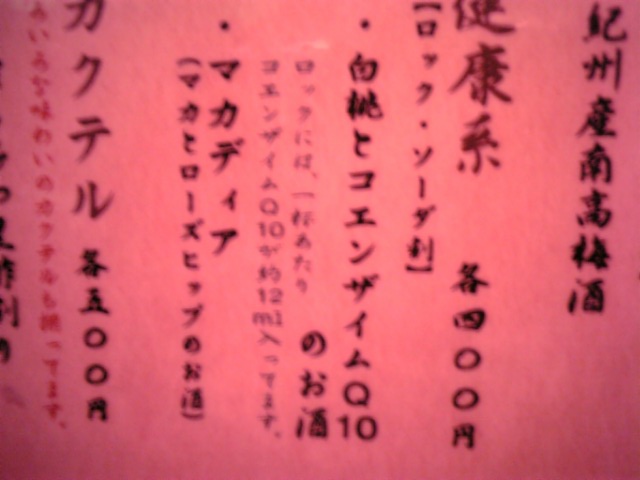 紀州産南高梅酒
健康系 各四〇〇円
【ロック・ソーダ割】
・白桃とコエンザイムQ10
のお酒
ロックには、一杯あたり
コエンザイムQ10が約12ml入ってます。
・マカディア
(マカとローズヒップのお酒)
カクテル 各五〇〇円